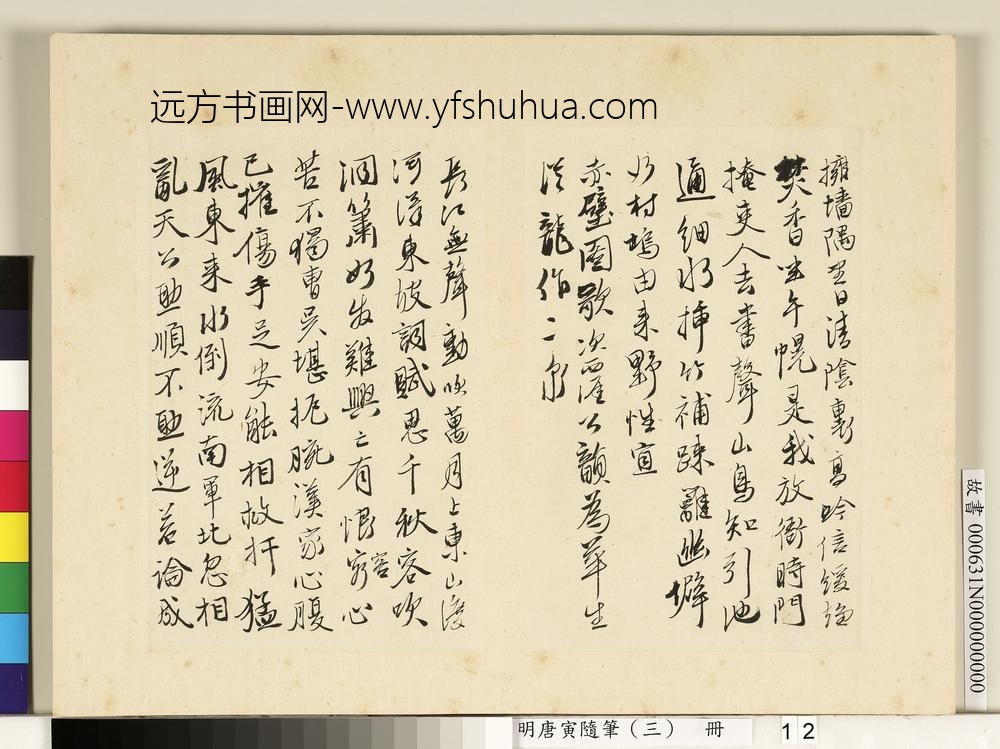 远方书画网-www.yfshuhua.com
擁墻隅盡日清陰裏高吟信緩
焚香坐午幌是我放衙時門
掩吏人去書聲山鳥知引池
通細水插竹補疎籬幽僻
如村塢由來野性宜
赤壁圖歌次西涯公韻為華生
從龍作二
長江無聲動吹萬月上東山渡
河漢東坡詞賦思千秋客吹
洞簫如發難興亡有恨客心
苦不獨曹吳堪扼腕漢家心腹
已摧傷手足安能相救扞猛
風東來水倒流南軍北忽相
亂天公助順不助逆若論成
故書 000631N000000000
明唐寅隨筆(三) 冊
12